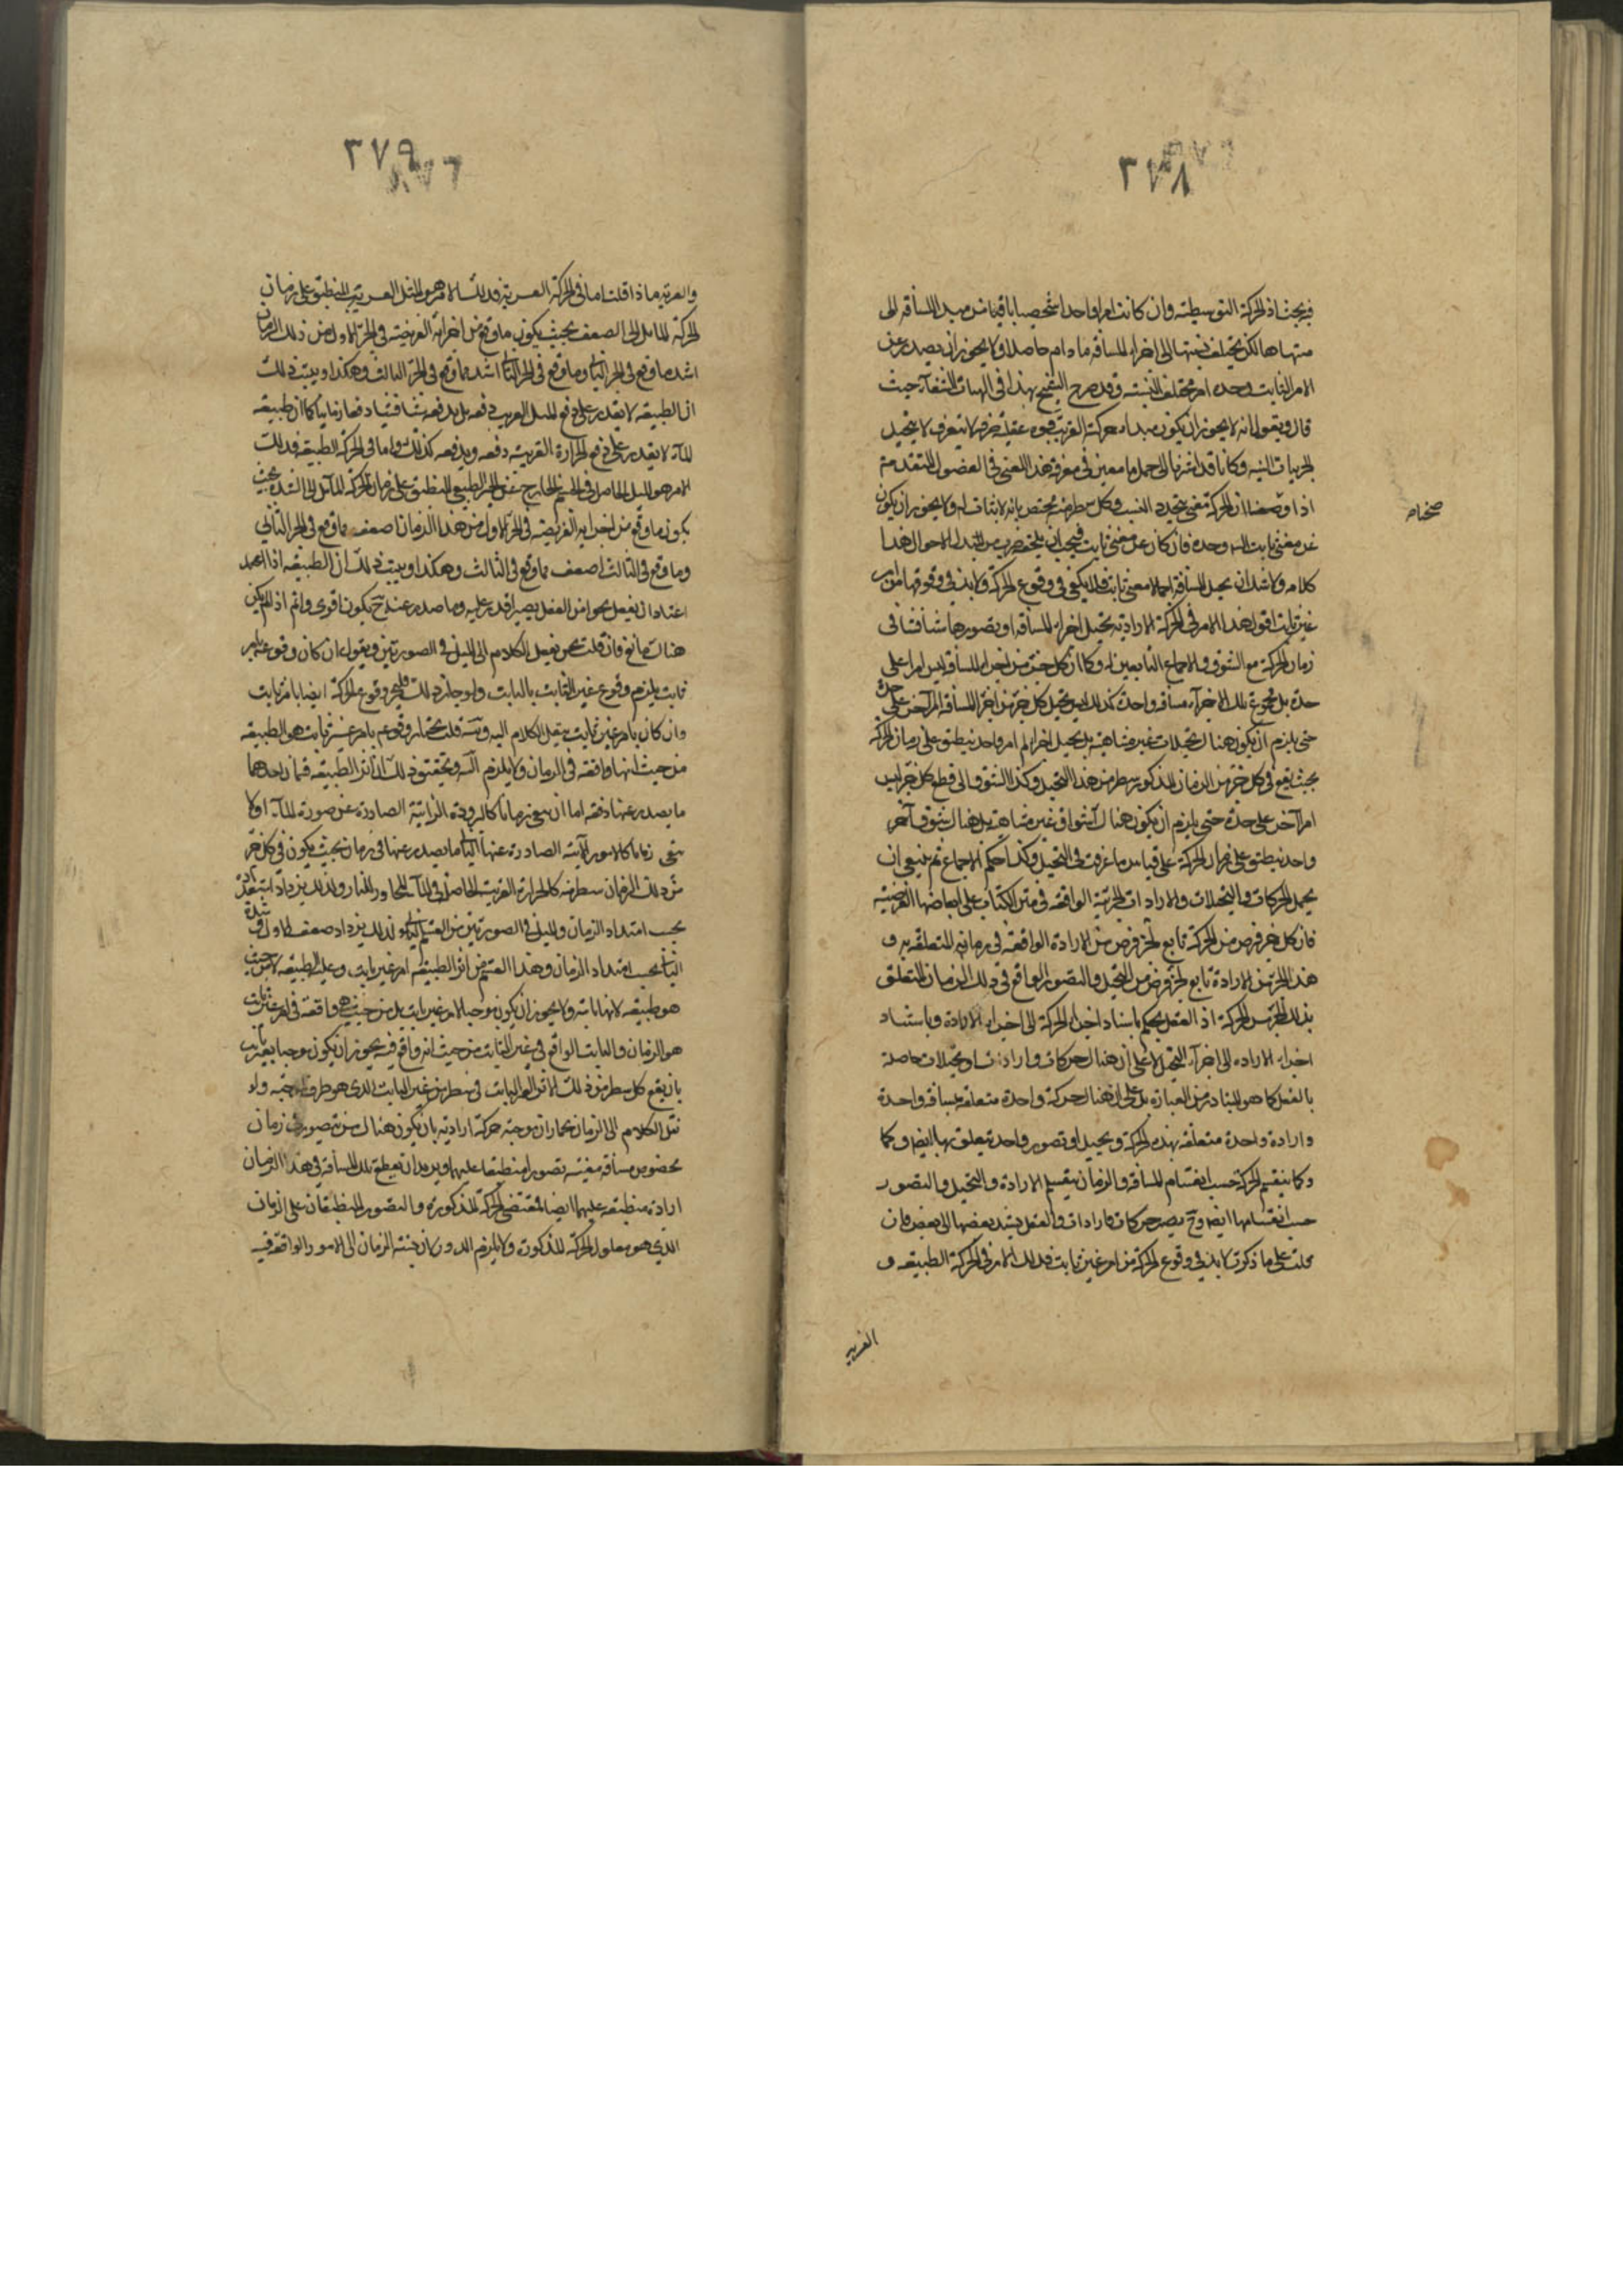 ٣٧٨
فيه بحث اذ الحركة التوسطية وان كانت امرا واحدا شخصيا باقيا من مبدا المسافة الى
منتهاها لكن يختلف نسبتها الى اجزاء المسافة ما دام حاصلا ولا يجوز ان يصدر عن
الامر الثابت وحده امر مختلف النسبة وقد صرح الشيخ بهذا فى الهيات الشفآء حيث
قال ونقول انه لا يجوز ان يكون مبدا حركته القريب قوة عقلية صرفة لا يتغير ف لا يتخيل
الجزئيات البتة وكانا قد اشرنا الى جمل ما معين فى معرفة هذا المعنى فى الفصول المتقدمة
اذا وضحنا ان الحركة معنى متجدد النسب وكل شطر منه مختص بانه لا ثبات له ولا يجوز ان يكون
عن معنى ثابت البته وحده فان كان عن معنى ثابت فيجب ان يلحقه ضرب من تبدل الاحوال هذا
كلامه ولا شك ان تخيل المسافة اجمالا معنى ثابت فلا يكفى فى وقوع الحركة ولا بد فى وقوعها من امر
غير ثابت اقول هذا الامر فى الحركة الارادية تخيل اجزاء المسافة او تصورها شيئا فشيئا فى
زمان الحركة مع الشوق والاجماع التابعين له وكما ان كل جزء من اجزاء المسافة ليس امرا على
حدة بل مجموع تلك الاجزآء مسافة واحدة كذلك ليس تخيل كل جزء من اجزآء المسافة امرا آخر على حدة
حتى يلزم ان يكون هناك تخيلات غير متناهية بل تخيل اجزائه امر واحد ينطبق على زمان الحركة
بحيث يقع فى كل جزء من الزمان المذكور شطر من هذا التخيل وكذا الشوق الى قطع كل جزء ليس
امرا آخر على حدة حتى يلزم ان يكون هناك آشواق غير متناهية بل هناك شوق آخر
واحد ينطبق على زمان الحركة على قياس ما عرفت فى التخيل وكذا حكم الاجماع ثم ينبغى ان
يحمل الحركات والتخيلات والارادات الجزئية الواقعة فى متن الكتاب على ابعاضها الفرضية
فان كل جزء فرض من الحركة تابع لجزء فرض من الارادة الواقعة فى زمانه المتعلقة به و
هذا الجزء من الارادة تابع لجزء فرض من التخيل والتصور الواقع فى ذلك الزمان المتعلق
بذلك الجزء من الحركة اذ العقل يحكم باسناد اجزاء الحركة الى اجزاء الارادة وباستناد
اجزاء الارادة الى اجزآء التخيل لا على ان هناك حركات وارادات وتخيلات حاصلة
بالفعل كما هو المتبادر من العبارة بل على ان هناك حركة واحدة متعلقة بمسافة واحدة
وارادة واحدة متعلقة بهذه الحركة وتخيل او تصور واحد يتعلق بها ايضا وكما
وكما ينقسم الحركة حسب انقسام المسافة والزمان ينقسم الارادة والتخيل والتصور
حسب انقسامها ايضا وح يصير حركات وارادات والعقل يسند بعضها الى بعض فان
قلت على ما ذكرت لا بد فى وقوع الحركة من امر غير ثابت فذلك الامر فى الحركة الطبيعية و
القسرية
٣٧٩
والقسرية ماذا قلت اما فى الحركة القسرية فذلك الامر هو الميل القسرى المنطبق على زمان
الحركة المايل الى الضعف بحيث يكون ما وقع من اجزائه الفرضية فى الجزء الاول من ذلك الزمان
اشد مما وقع فى الجزء الثانى وما وقع فى الجزء الثانى اشد مما وقع فى الجزء الثالث وهكذا وسبب ذلك
ان الطبيعة لا يقدر على دفع الميل الغريب دفعة بل يدفعه شيئا فشيئا دفعا زمانيا كما ان طبيعة
المآء لا يقدر على دفع الحرارة الغريبة دفعة ويدفعه كذلك واما فى الحركة الطبيعية فذلك
الامر هو الميل الحاصل فى الجسم الخارج عن الحيز الطبيعى المنطبق على زمان الحركة المآئل الى الشدة بحيث
يكون ما وقع من اجزائه الفرضية فى الجزء الاول من هذا الزمان اضعف مما وقع فى الجزء الثانى
وما وقع فى الثالث اضعف مما وقع فى الثالث وهكذا وسبب ذلك ان الطبيعة اذا
اعتاد ان يفعل نحوا من الفعل يصير اقدر عليه وما صدر عنه ح يكون اقوى واتم اذا لم يكن
هناك مانع فان قلت نحن ننقل الكلام الى الميل فى الصورتين ونقول ان كان وقوعه بامر
ثابت يلزم وقوع غير الثابت بالثابت ولو جاز ذلك فليجز وقوع الحركة ايضا بامر ثابت
وان كان بامر غير ثابت ينقل الكلام اليه وتس قلت نختار وقوعه بامر غير ثابت هو الطبيعة
من حيث انها واقعة فى الزمان ولا يلزم التس وتحقيق ذلك ان اثر الطبيعة قسمان احدهما
ما يصدر عنها دفعة اما ان يبقى زمانا كالبرودة الذاتية الصادرة عن صورة المآء اولا
يبقى زمانا كالامور الآنية الصادرة عنها الثانى ما يصدر عنها فى زمان بحيث يكون فى كل جزء
من ذلك الزمان شطر منه كالحرارة الغريبة الحاصلة فى المآء المجاور للنار ولذلك يزداد
بحسب امتداد الزمان والميل فى الصورتين من القسم الثانى ولذلك يزداد ضعف الاول و شدة
الثانى بحسب امتداد الزمان وهذا القسم من اثر الطبيعة امر غير ثابت وعلته الطبيعة لا من حيث
هو طبيعة لانها ثابتة ولا يجوز ان يكون موجبا لامر غير ثابت بل من حيث هى واقعة فى امر غير ثابت
هو الزمان والثابت الواقع فى غير الثابت من حيث انه واقع فيه يجوز ان يكون موجبا لغير ثابت
بان يقع كل شطر من ذلك الاثر الغير الثابت فى شطر من غير الثابت الذى هو ظرف لموجبه ولو
نقل الكلام الى الزمان نختار ان موجبه حركة ارادية بان يكون هناك من يتصور فى زمان
مخصوص مسافة معينة تصورا منطبقا عليهما ويريد ان يقطع تلك المسافة فى هذا الزمان
ارادة منطبقة عليهما ايضا فيقتضى الحركة المذكورة والتصور المنطبقان على الزمان
الذى هو معلول الحركة المذكورة ولا يلزم الدور لان نسبة الزمان الى الامور الواقعة فيه